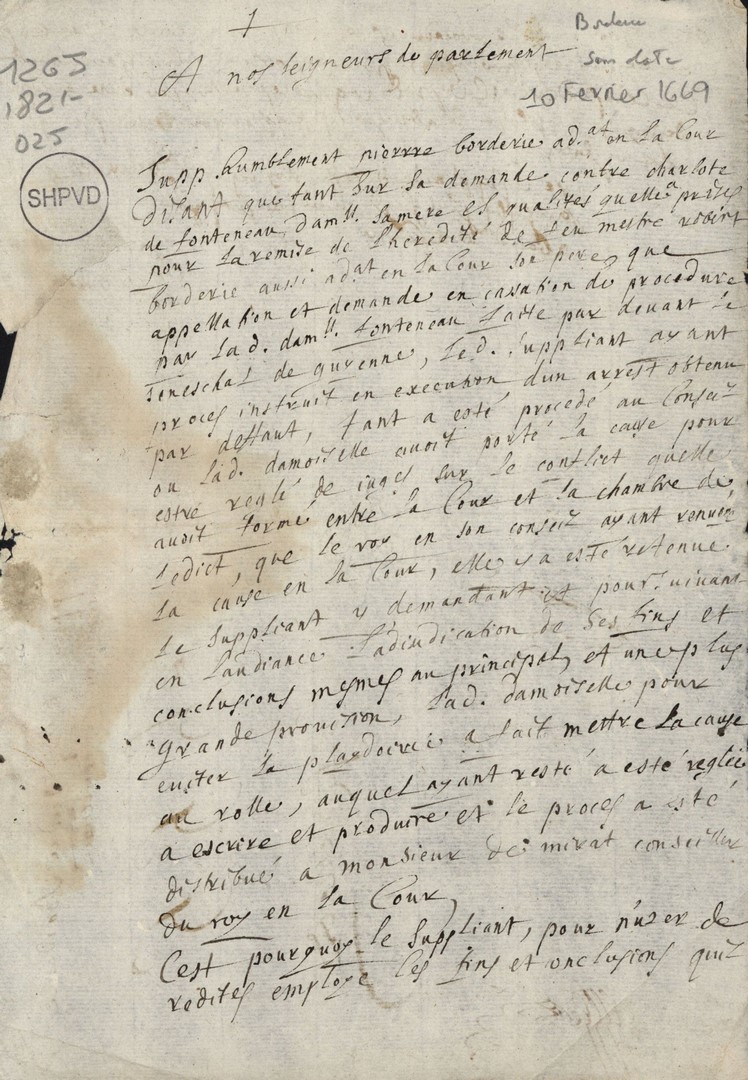 1
Bordeaux
sans date
10 Fevrier 1669
1265
1821-
025
SHPVD
A nosseigneurs de parlement
Supp. humblement pierrre borderie ad.at en la Cour
disant que tant sur sa demande contre charlote
de fonteneau dam.lle sa mere es qualités quelle a prises
pour la remise de l'heredité de feu mestre robert
borderie aussi adat en la Cour son pere, que
appellation et demande en casation de procedure
par lad. dam.lle fonteneau faite par devant le
seneschal de guyenne, led. suppliant ayant
proces instruit en execution dun arrest obtenu
par deffaut, tant a esté procedé au Conseil
ou lad. damoiselle avoit porté la cause pour
estre reglé de iuges sur le conflict quelle
avoit formé entre la Cour et la chambre de
ledict, que le roy en son conseil ayant renvoié
la cause en la Cour, elle y a esté retenue
le suppliant y demandant et poursuivant
en laudiance ladiudication de ses fins et
conclusions mesmes au principal, et une plus
grande provision, lad. damoiselle pour
eviter la plaidoirie a fait mettre la cause
au rolle, auquel ayant resté a esté reglée
a escrire et produire et le proces a esté
distribué a monsieur de mirat conseiller
du roy en la Cour,
Cest pourquoy le suppliant, pour nuzer de
redites employe les fins et onclusions quil